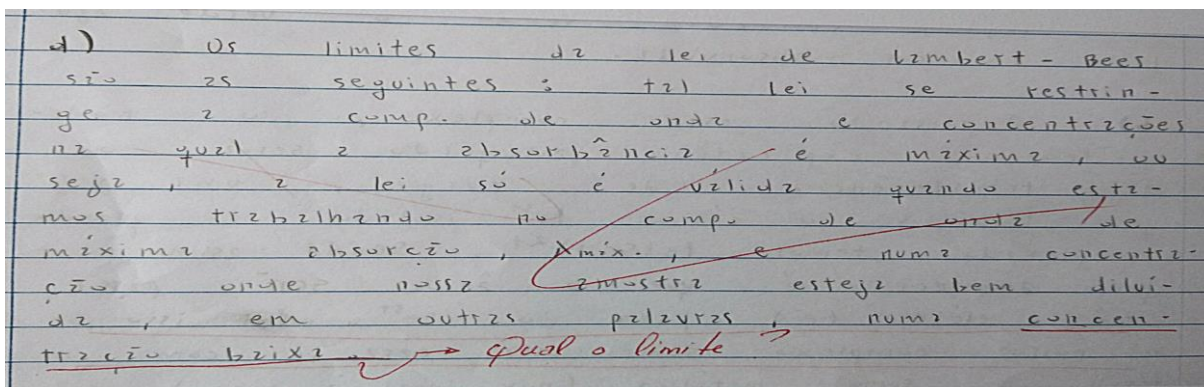 d) Os limites da lei de Lambert - Bees
são as seguintes : tal lei se restrin-
ge a comp. de onda e concentrações
na qual a absorbância é máxima, ou
seja, a lei só é válida quando esta-
mos trabalhando no comp. de onda de
máxima absorção, λmáx., e numa concentra-
ção onde nossa amostra esteja bem diluí-
da, em outras palavras, numa concen-
tração baixa. Qual o limite ?